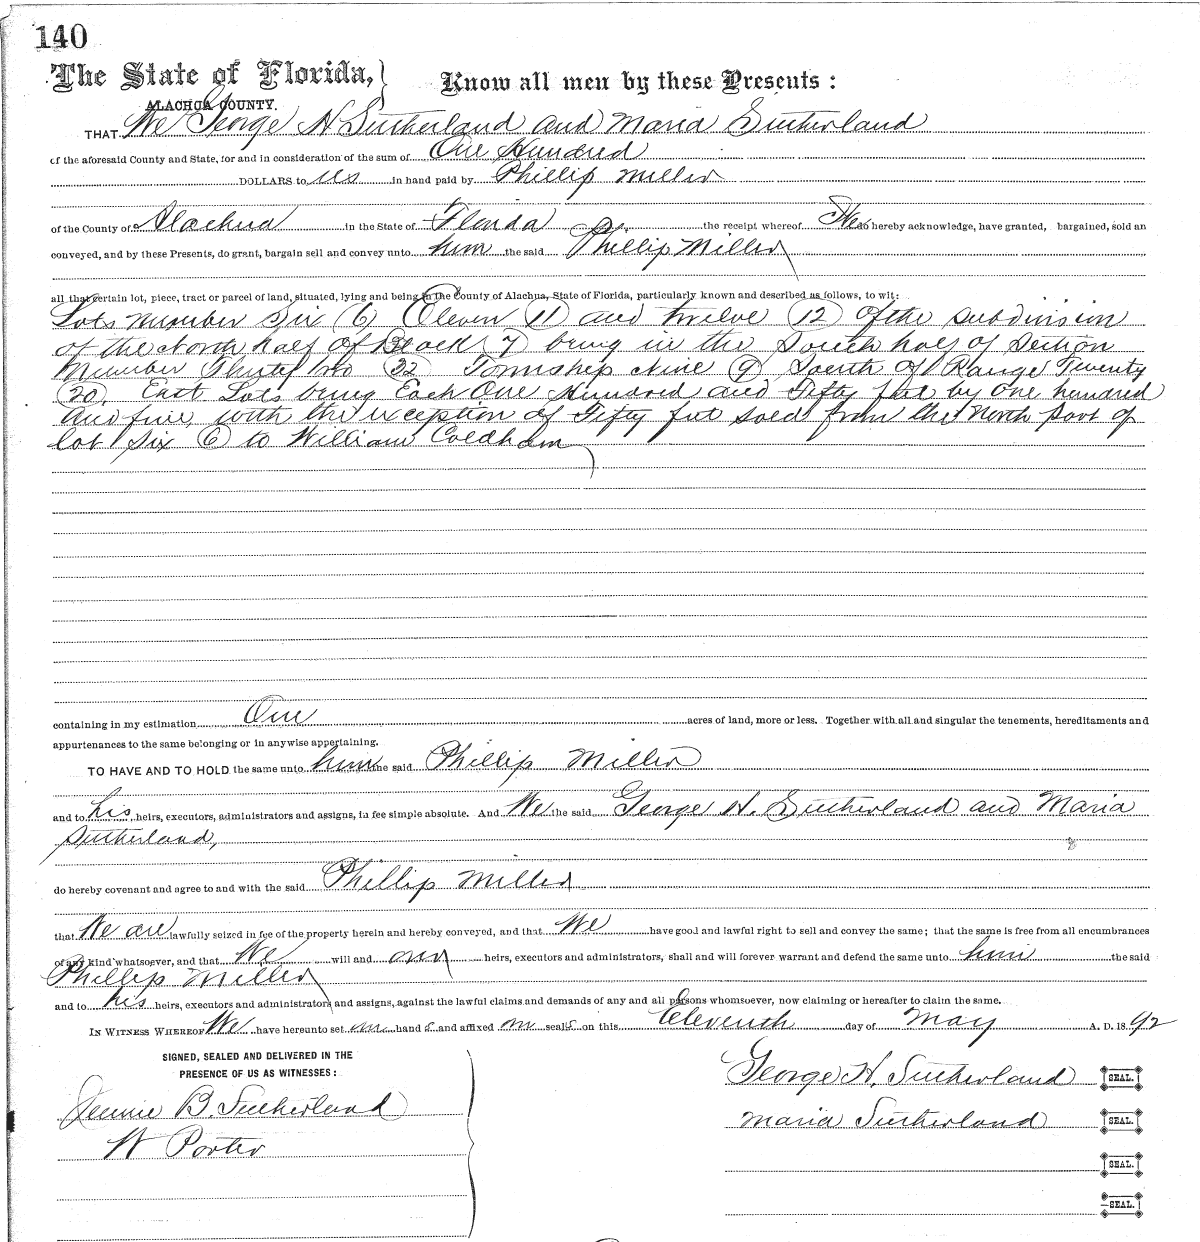 140
The State of Florida, } Know all men by these Presents :
ALACHUA COUNTY.
THAT We George H Sutherland and Maria Sutherland
of the aforesaid County and State, for and in consideration of the sum of One Hundred
DOLLARS to us in hand paid by Phillip Miller
of the County of Alachua in the State of Florida the receipt whereof We do hereby acknowledge, have granted, bargained, sold an
conveyed, and by these Presents, do grant, bargain sell and convey unto him the said Phillip Miller
all that certain lot, piece, tract or parcel of land, situated, lying and being in the County of Alachua, State of Florida, particularly known and described as follows, to wit:
Lots number Six (6) Eleven (11) and twelve (12) of the subdivision
of the North half of Block (7) being in the South half of Section
Number Thirty two (32) Township Nine (9) South of Range Twenty
(20) East Lots being Each One Hundred and Fifty feet by one hundred
and five, with the exception of Fifty feet sold from the North part of
lot Six (6) to William
containing in my estimation One acres of land, more or less. Together with all and singular the tenements, hereditaments and
appurtenances to the same belonging or in anywise appertaining.
TO HAVE AND TO HOLD the same unto him the said Phillip Miller
and to his heirs, executors, administrators and assigns, in fee simple absolute. And We the said George H. Sutherland and Maria
Sutherland,
do hereby covenant and agree to and with the said Phillip Miller
that We are lawfully seized in fee of the property herein and hereby conveyed, and that We have good and lawful right to sell and convey the same; that the same is free from all encumbrances
of any kind whatsoever, and that We will and our heirs, executors and administrators, shall and will forever warrant and defend the same unto him the said
Phillip Miller
and to his heirs, executors and administrators and assigns, against the lawful claims and demands of any and all persons whomsoever, now claiming or hereafter to claim the same.
IN WITNESS WHEREOF We have hereunto set our hands and affixed our seals on this Eleventh day of May A. D. 1892
SIGNED, SEALED AND DELIVERED IN THE
PRESENCE OF US AS WITNESSES:
George H. Sutherland SEAL.
Jennie B. Sutherland
Maria Sutherland SEAL.
W Porter
SEAL.
SEAL.